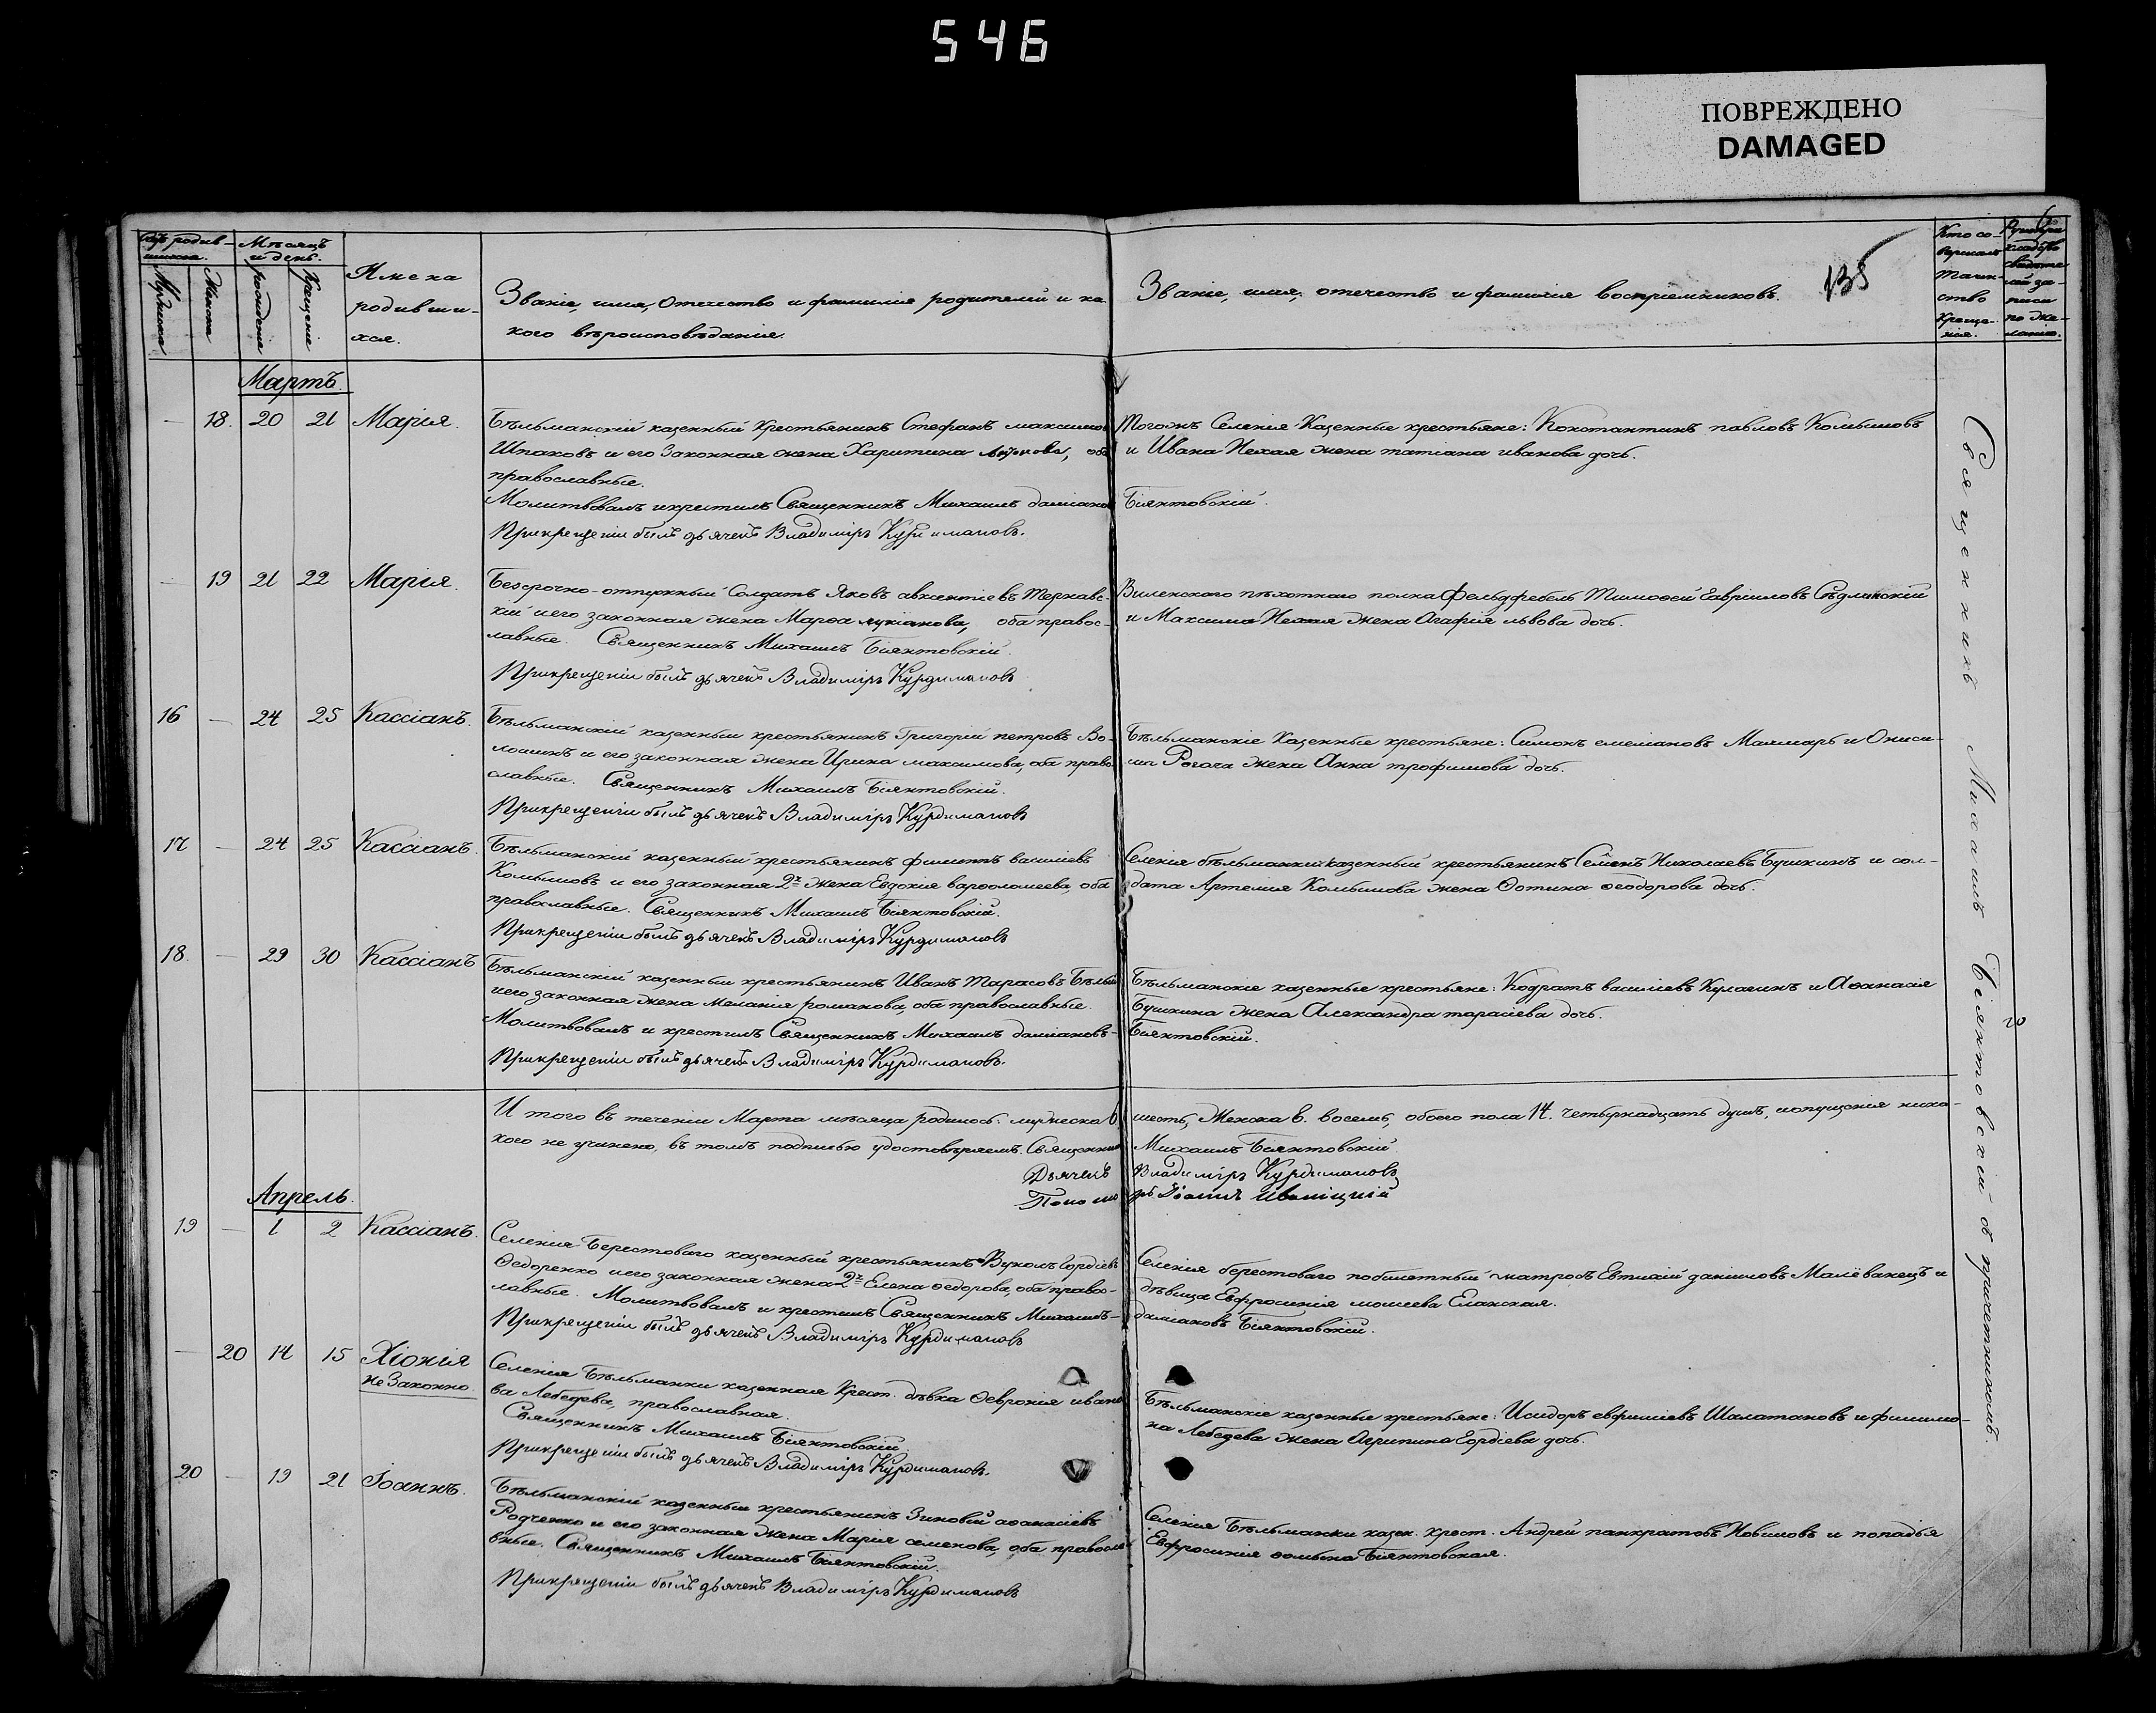 546
ПОВРЕЖДЕНО
DAMAGED
135
Мѣсяцъ и день.
рожденіе
Крещеніе
Имена родивши-
хся.
Званіе, имя, Отечество и фамилія родителей и ка-
кого вѣроисповѣданія.
Званіе, имя, отечество и фамилія воспріемниковъ.
Кто со-
вершалъ
таин-
ство
Креще-
нія.
Мартъ.
— 18. 20 21 Марія.
Бѣльманскій казенный Крестьянинъ Стефанъ максимов
Шпаковъ и его Законная жена Харитина, оба
православные.
Молитвовалъ и крестилъ Священникъ Михаилъ даміанов
Прикрещеніи былъ дьячекъ Владиміръ Курдимановъ.
Тогожъ Селенія Казенные крестьяне: Константинъ павловъ Колышовъ
и Ивана Нехая жена татіана иванова дочь.
Біянтовскій.
— 19 21 22 Марія.
Безсрочно-отпускный Солдатъ Яковъ авксентіевъ Тернавс-
кій иего законная жена Марѳа лукіанова, оба правос-
лавные. Священникъ Михаилъ Біянтовскій.
Прикрещеніи былъ дьячекъ Владиміръ Курдимановъ
Виленскаго пѣхотнаго полка Фельдфебель Тимоѳей Гавріиловъ Сѣдлинскій
и Максима Нехая жена Агафія львова дочь.
16 — 24 25 Кассіанъ.
Бѣльманскій казенный крестьянинъ Григорій петровъ Во-
лошинъ и его законная жена Ирина максимова, оба право-
славные. Священникъ Михаилъ Біянтовскій.
Прикрещеніи былъ дьячекъ Владиміръ Курдимановъ
Бѣльманскіе Казенные крестьяне: Симонъ емеліановъ Маямаръ и Ониси-
ма Рогача жена Анна трофимова дочь.
17 — 24 25 Кассіанъ.
Бѣльманскій казенный крестьянинъ филиппъ василіевъ
Колышовъ и его законная 2я жена Евдокія варѳоломеева, оба
православные. Священникъ Михаилъ Біянтовскій.
Прикрещеніи былъ дьячекъ Владиміръ Курдимановъ
Селенія бѣльманки казенный крестьянинъ Семенъ Николаевъ Бушкинъ и сол-
дата Артемія Колышова жена Фотина ѳеодорова дочь.
18. — 29 30 Кассіанъ
Бѣльманскій казенный крестьянинъ Иванъ Тарасовъ Бѣлый
иего законная жена Меланія романова, оба православные.
Молитвовалъ и крестилъ Священникъ Михаилъ даміановъ-
Прикрещеніи былъ дьячекъ Владиміръ Курдимановъ.
Бѣльманскіе казенные крестьяне: Кодратъ василіевъ Кулагинъ и Аѳанасія
Бушкина жена Александра тарасіева дочь.
Біянтовскій.
Итого въ теченіи Марта мѣсяца родилось: мужеска 6.
шесть, Женска 8. восемь, обоего пола 14. четырнадцать душъ, иопущенія ника-
кого не учинено, въ томъ подписью удостовѣряемъ. Священникъ
Михаилъ Біянтовскій
Дьячекъ Владиміръ Курдимановъ
Пономарь Іоаннъ Иваницкій
Апрель.
19 — 1 2 Кассіанъ.
Селенія Берестоваго казенный крестьянинъ Вуколъ Гордіевъ
Ѳедоренко иего законная жена 2я Елена ѳедорова, оба правос-
лавные. Молитвовалъ и крестилъ Священникъ Михаилъ-
Прикрещеніи былъ дьячекъ Владиміръ Курдимановъ
Селенія берестоваго побилетный матросъ Евтихій даніиловъ Малёванецъ и
дѣвица Евфросинія моисеева Еланская.
даміановъ Біянтовскій.
— 20 14 15 Хіонія
не Законно.
Селенія Бѣльманки казенная Крест. дѣвка Ѳевронія ивано-
ва Лебедева, православная.
Священникъ Михаилъ Біянтовскій.
Прикрещеніи былъ дьячекъ Владиміръ Курдимановъ.
Бѣльманскіе казенные крестьяне: Исидоръ евфиміевъ Шалатановъ и филимо-
на Лебедева жена Агрипина Гордіева дочь.
20 — 19 21 Іоаннъ.
Бѣльманскій казенный крестьянинъ Зиновій аѳанасіевъ
Родченко и его законная жена Марія семенова, оба правосла-
вные. Священникъ Михаилъ Біянтовскій.
Прикрещеніи былъ дьячекъ Владиміръ Курдимановъ
Селенія Бѣльманки казен. крест. Андрей панкратовъ Новиковъ и попадья
Евфросинія ѳомина Біянтовская.
Священникъ Михаилъ Біянтовскій съ причетникомъ.